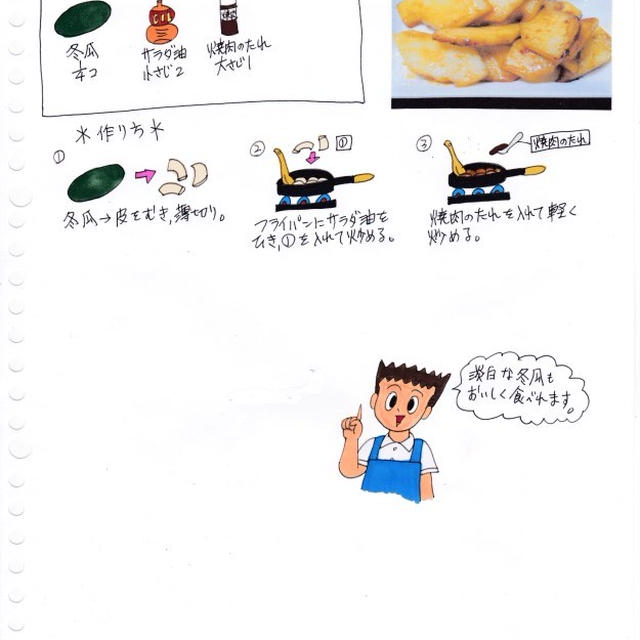 OIL
冬瓜
サラダ油
小さじ2
焼肉のたれ
大さじ1
*作り方*
①
冬瓜→皮をむき,薄切り。
②
①
フライパンにサラダ油を
ひき,①を入れて炒める。
③
焼肉のたれ
焼肉のたれを入れて軽く
炒める。
淡白な冬瓜も
おいしく食べれます。